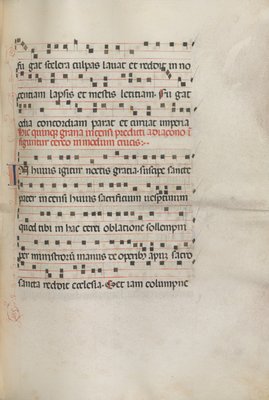 fu gat scelera culpas lauat et reddit in no
centiam lapsis et mestis letitiam. Fu gat
odia concordiam parat et curuat imperia
hic quinque grana incensi preducti a diacono i
figuntur cereo in modum crucis:
In huius igitur noctis gratia suscipe sancte
pater incensi huius sacrificium uespertinum
quod tibi in hac cerei oblatione sollempni
per ministrorum manus de operibus apum sacro
sancta reddit ecclesia. Set iam columpne